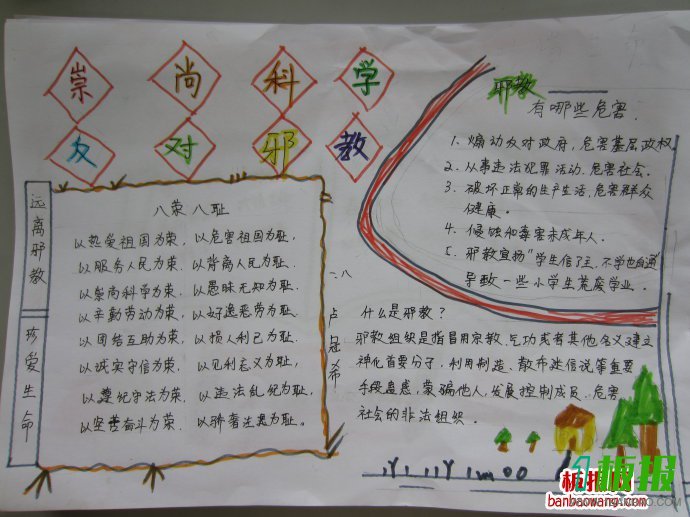 崇尚科学
友对邪教
远离邪教
珍爱生命
八荣八耻
以热爱祖国为荣、以危害祖国为耻、
以服务人民为荣、以背离人民为耻、
以崇尚科学为荣、以愚昧无知为耻、
以辛勤劳动为荣、以好逸恶劳为耻、
以团结互助为荣、以损人利己为耻、
以诚实守信为荣、以见利忘义为耻、
以遵纪守法为荣、以违法乱纪为耻、
以坚苦奋斗为荣、以骄奢注逸为耻。
二、八
卢冠希
邪教
有哪些危害.
1、煽动友对政府,危害基层政权
2、从事违法犯罪活动.危害社会。
3、破坏正常的生产生活,危害群众
健康。
4、侵蚀和毒害未成年人。
5、邪教宣扬"学生信了主,不学也自通
导致一些小学生荒废学业。
什么是邪教?
邪教组织是指冒用宗教、气功或者其他名义建立
神化首要分子,利用制造、散布迷信说等重要
手段蛊惑,蒙骗他人,发展控制成员、危害
社会的非法组织.
板报
板报网
banbaowang.com